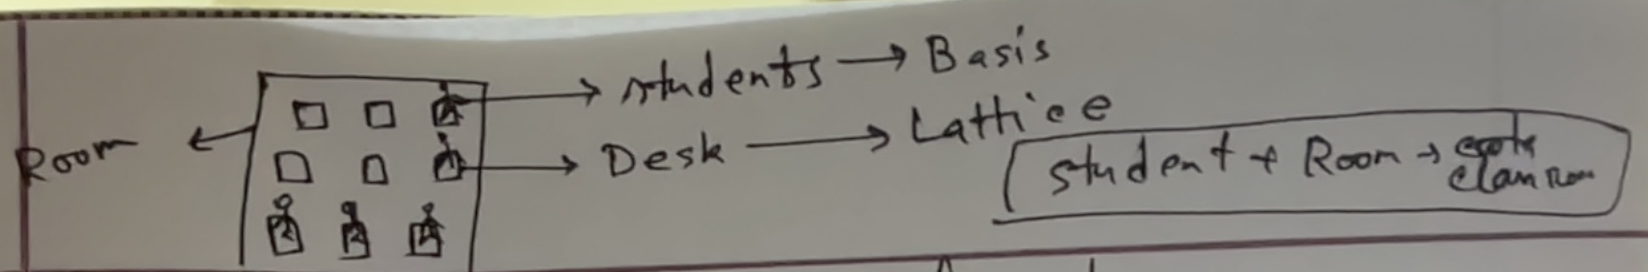 students → Basis
Room ← → Desk → Lattice
student + Room → classroom